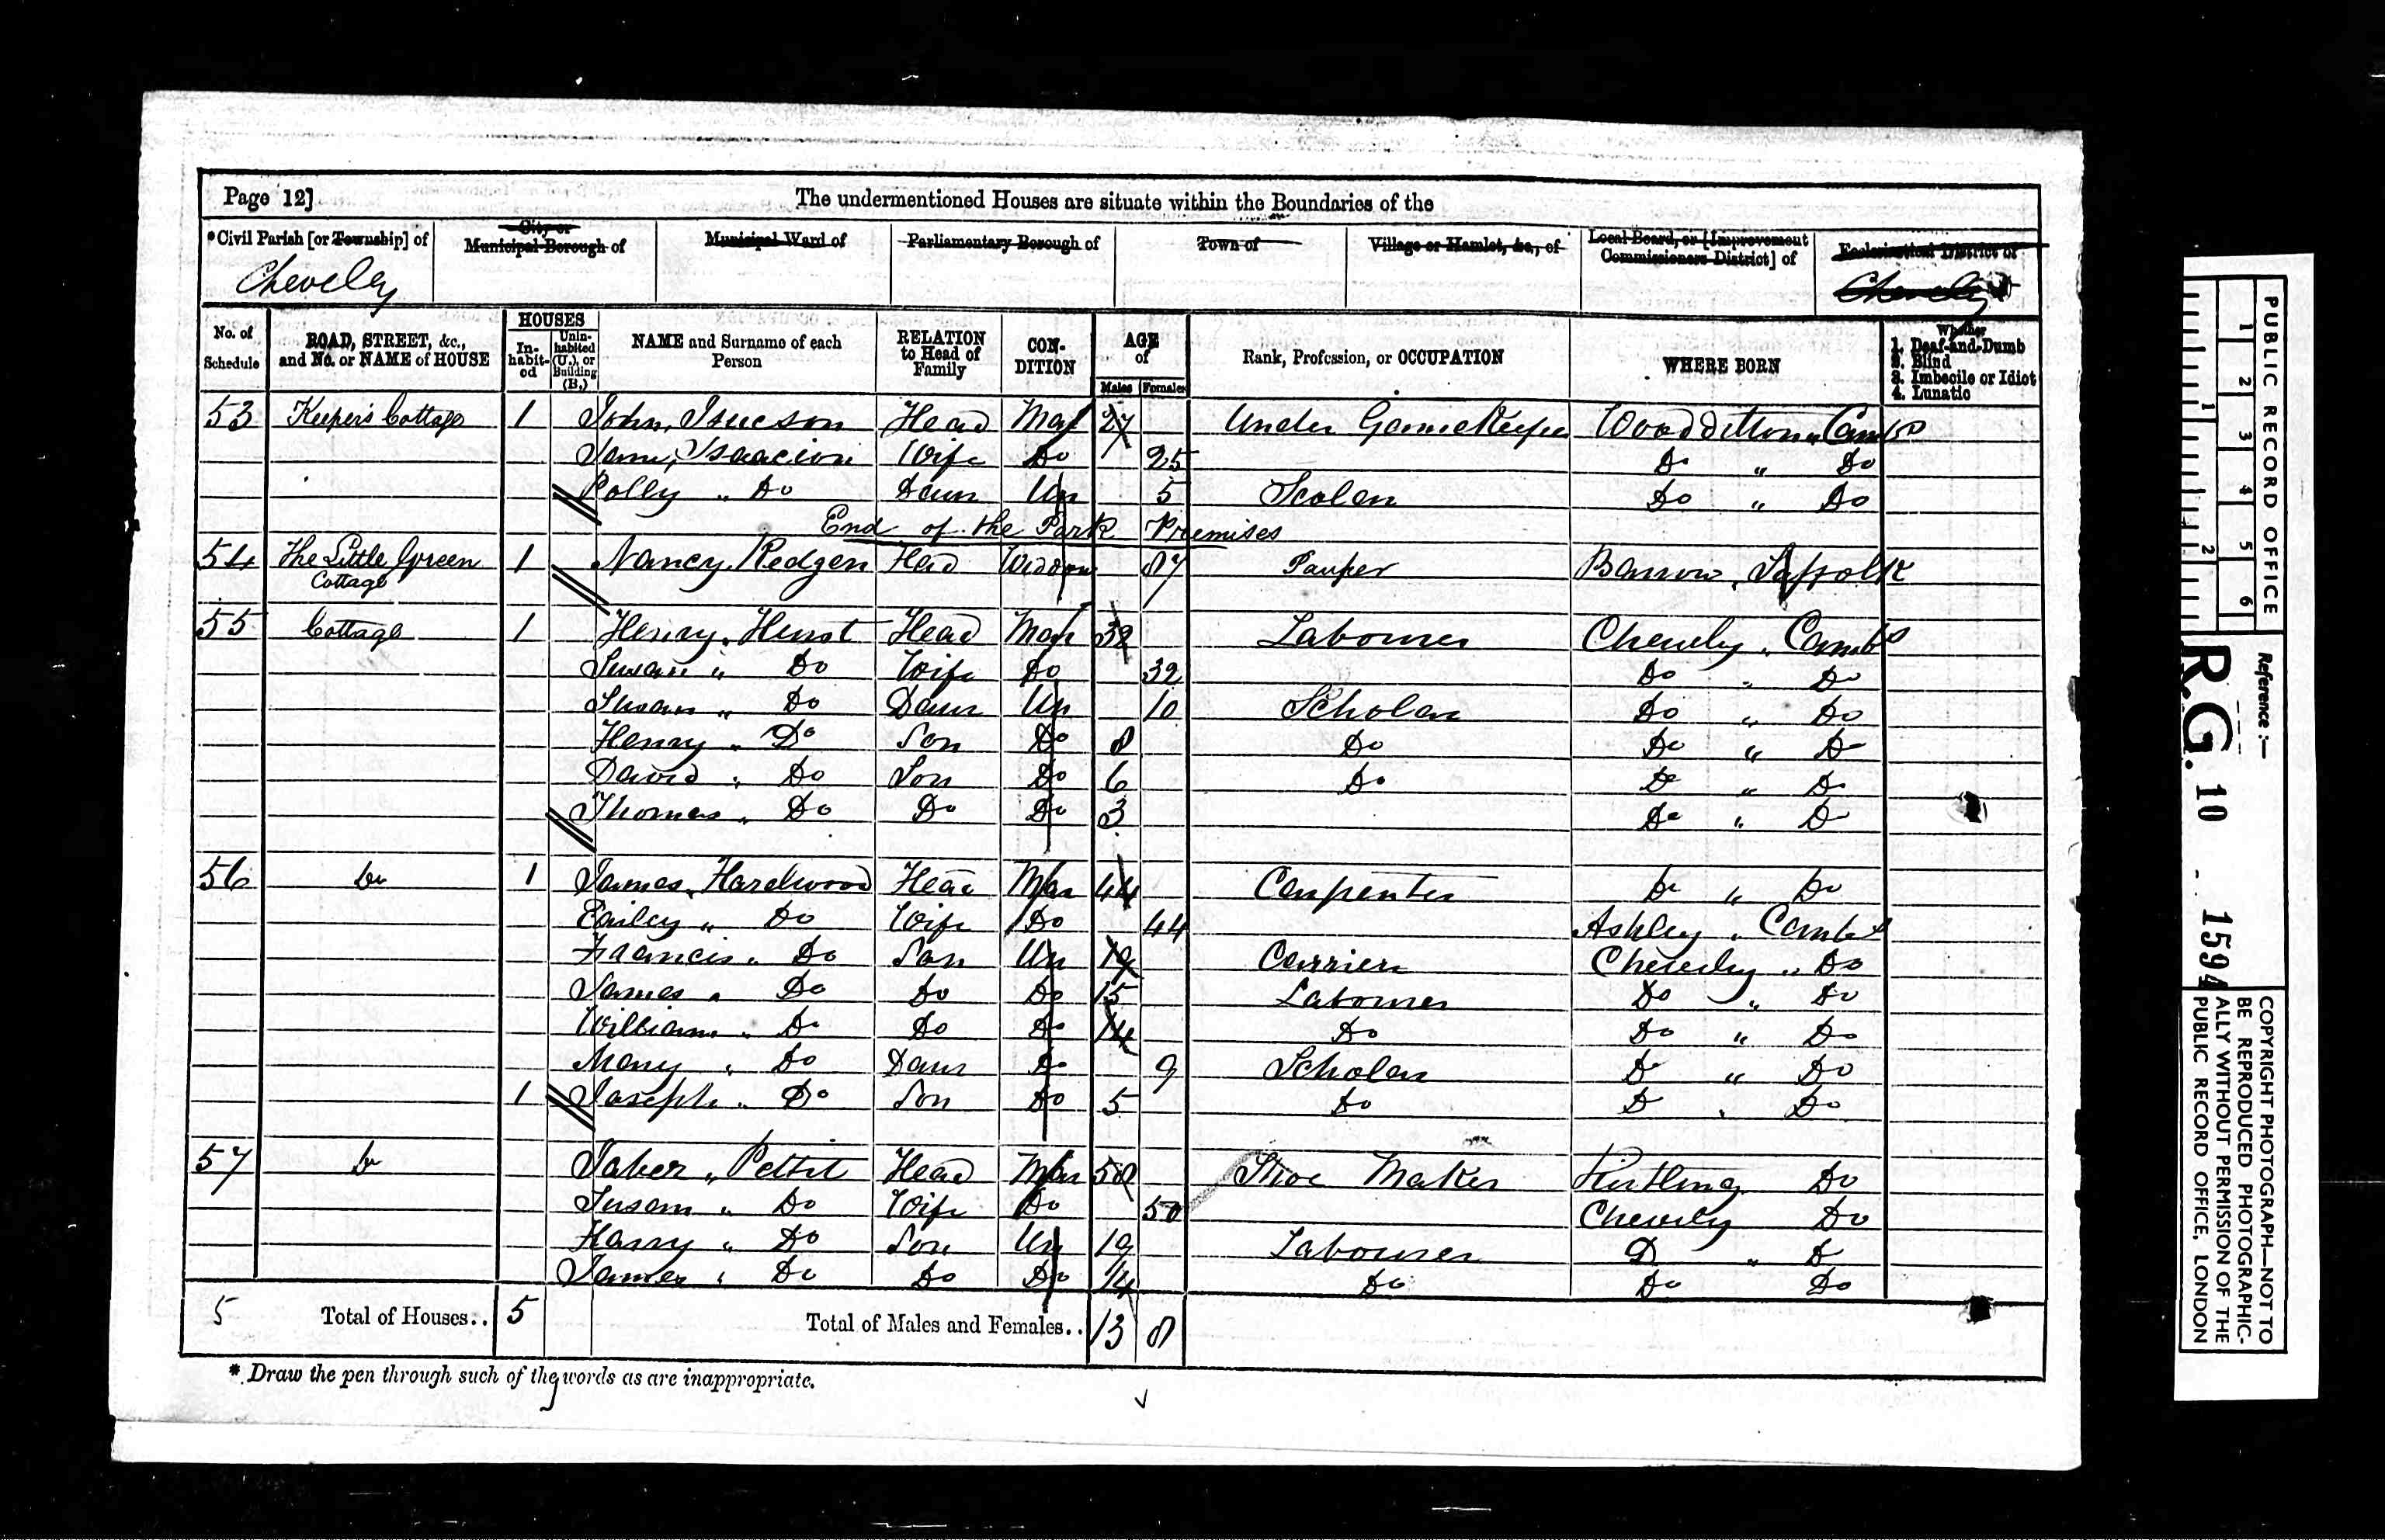 Page 12]
The undermentioned Houses are situate within the Boundaries of the
*Civil Parish [or Township] of
City or Municipal Borough of
Municipal Ward of
Parliamentary Borough of
Town of
Village or Hamlet, &c., of
Local Board, or [Improvement Commissioners District] of
Ecclesiastical District of
Cheveley
Cheveley
No. of Schedule
ROAD, STREET, &c., and No. or NAME of HOUSE
HOUSES
In-habit-ed
Unin-habited (U.), or Building (B.)
NAME and Surname of each Person
RELATION to Head of Family
CON-DITION
AGE of
Males
Females
Rank, Profession, or OCCUPATION
WHERE BORN
Whether
1. Deaf-and-Dumb
2. Blind
3. Imbecile or Idiot
4. Lunatic
53 Keepers Cottage 1 John, Head Mar 27 Under GameKeeper Woodditton, Cambs
Wife Do 25 Do " Do
Polly " Do Daur Un 5 Scolar Do " Do
End of the Park Premises
54 The Little Green Cottage 1 Nancy Head Widow 87 Pauper Barrow, Suffolk
55 Cottage 1 Henry Head Mar 32 Labourer Cheveley " Cambs
Susan " Do Wife Do 32 Do " Do
Susan " Do Daur Un 10 Scholar Do " Do
Henry " Do Son Do 8 Do Do " Do
David " Do Son Do 6 Do Do " Do
Thomas " Do Do Do 3 Do " Do
56 Do 1 James Head Mar 44 Carpenter Do " Do
" Do Wife Do 44 Ashley " Cambs
Francis " Do Son Un 19 Carrier Cheveley " Do
James " Do Do Do 15 Labourer Do " Do
William " Do Do Do 14 Do Do " Do
Mary " Do Daur Do 9 Scholar Do " Do
1 Joseph " Do Son Do 5 Do Do " Do
57 Do Pettit Head Mar 50 Shoe Maker Kirtling Do
Susan " Do Wife Do 50 Cheveley Do
Harry " Do Son Un 19 Labourer Do " Do
James " Do Do Do 14 Do Do Do
5 Total of Houses.. 5 Total of Males and Females.. 13 8
*. Draw the pen through such of the words as are inappropriate.
PUBLIC RECORD OFFICE
1 2 3 4 5 6
1 2
Reference :-
R.G. 10 1594
COPYRIGHT PHOTOGRAPH—NOT TO
BE REPRODUCED PHOTOGRAPHIC-
ALLY WITHOUT PERMISSION OF THE
PUBLIC RECORD OFFICE, LONDON